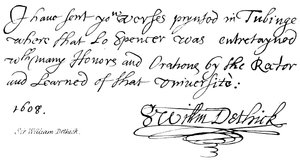 I have sent yoʷ Verses prynted in Tubinge
where that Lo Spencer was entretayned
wᵗʰ many Honors and Orations by the Rector
and Learned of that Universite:
1608.
S Willm Dethick
Sir William Dethick.